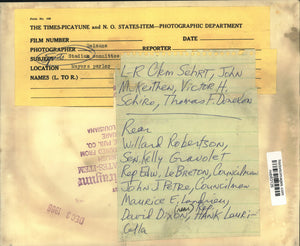 Form No. 408
THE TIMES-PICAYUNE and N. O. STATES-ITEM—PHOTOGRAPHIC DEPARTMENT
FILM NUMBER
PHOTOGRAPHER REPORTER
SUBJECT Stadium committee
LOCATION Mayors parlor
NAMES (L. TO R.)
L-R Clem Sehrt, John
McKeithen, Victor H.
Schiro, Thomas F. Donelon
Rear
Willard Robertson,
Sen. Kelly Gravolet
Rep Edw. LeBreton, Councilman
John J Petre, Councilman
Maurice E. Landrieu,
David Dixon, Hank Lauri-
cella